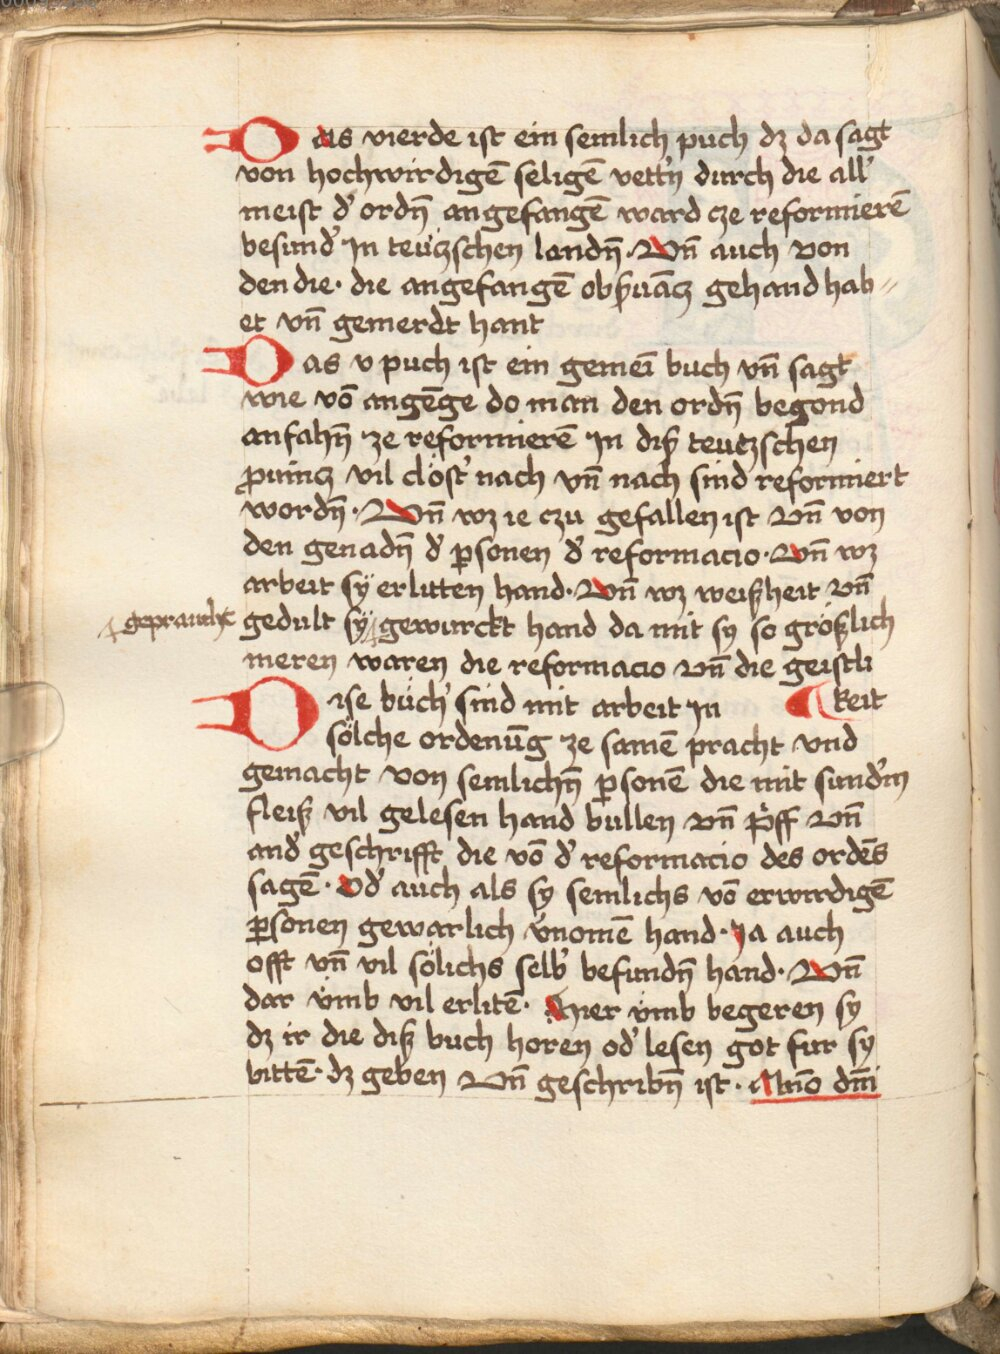 Das vierde ist ein semlich puch dz da sagt
von hochwirdigē seligē vett'n durch die all'
meist d' ordn̄ angefangē ward cze reformierē
besund' jn teútzschen landn̄. Vn̄ auch von
den die. die angefangē obs̄uātz gehand hab=
et vn̄ gemerdt hant
Das v puch ist ein gemeī buch vn̄ sagt
wie vō angēge do man den ordn̄ begond
anfahn̄ ze reformierē jn diß teutzschen
ꝓuintz vil clöst' nach vn̄ nach sind reformiert
wordn̄. Vn̄ wz ie czu gefallen ist Vn̄ von
den genadn̄ d' ꝑsonen d' reformacio. Vn̄ wz
arbeit sÿ erlitten hand. Vn̄ wz weißheit Vn̄
gepraucht gedult sÿ gewurckt hand da mit sy so größlich
meren waren die reformacio Vn̄ die geistli
Dise büch' sind mit arbeit jn keit
sölche ordenūg ze samē pracht vnd
gemacht von semlichn̄ ꝑsonē die mit sund'm
fleiß vil gelesen hand bullen Vn̄ p'ff Vn̄
and' geschrifft die vō d' reformacio des ordēs
sagē. Od' auch als sy semlichs vō erwirdigē
ꝑsonen gewarlich v'nomē hand. ja auch
offt vn̄ vil sölichs selb' befundn̄ hand. Vn̄
dar vmb vil erlitē. Hier vmb begeren sy
dz ir die diß buch horen od' lesen got fur sy
bittē. dz geben Vn̄ geschribn̄ ist. Anno dm̄i